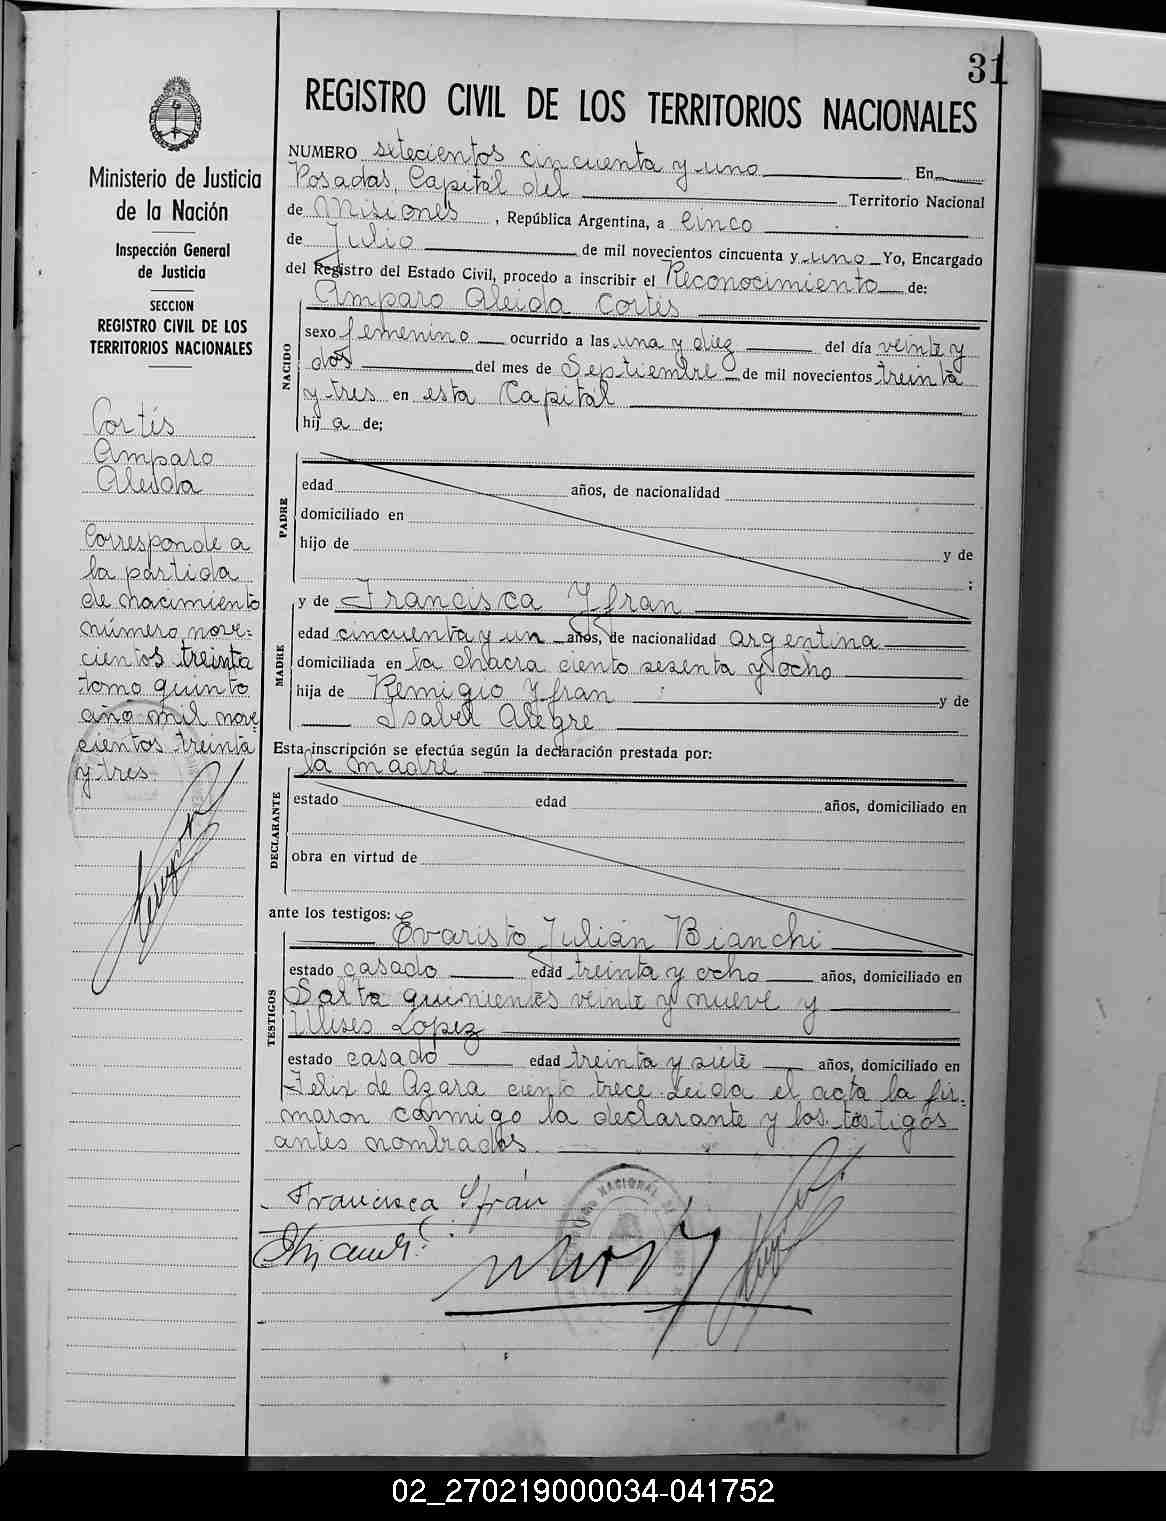 31
REGISTRO CIVIL DE LOS TERRITORIOS NACIONALES
Ministerio de Justicia
de la Nación
Inspección General
de Justicia
SECCION
REGISTRO CIVIL DE LOS
TERRITORIOS NACIONALES
Cortés
Amparo
Aleida
Corresponde a
la partida
de nacimiento
número nove=
cientos treinta
tomo quinto
año mil nove
cientos treinta
y tres
NUMERO setecientos cincuenta y uno En
Posadas, Capital del Territorio Nacional
de Misiones, República Argentina, a cinco
de Julio de mil novecientos cincuenta y uno Yo, Encargado
del Registro del Estado Civil, procedo a inscribir el Reconocimiento de:
Amparo Aleida Cortés
NACIDO
sexo femenino ocurrido a las una y diez del día veinte y
dos del mes de Septiembre de mil novecientos treinta
y tres en esta Capital
hij a de;
PADRE
edad años, de nacionalidad
domiciliado en
hijo de y de
;
MADRE
y de Francisca Yfran
edad cincuenta y un años, de nacionalidad argentina
domiciliada en la chacra ciento sesenta y ocho
hija de Remigio Yfran y de
Isabel Alegre
Esta inscripción se efectúa según la declaración prestada por:
la madre
DECLARANTE
estado edad años, domiciliado en
obra en virtud de
ante los testigos:
TESTIGOS
Evaristo Julián Bianchi
estado casado edad treinta y ocho años, domiciliado en
Salta quinientos veinte y nueve y
Ulises López
estado casado edad treinta y siete años, domiciliado en
Felix de Azara ciento trece. Leida el acta la fir=
maron conmigo la declarante y los testigos
antes nombrados.
Francisca Yfrán
02_270219000034-041752